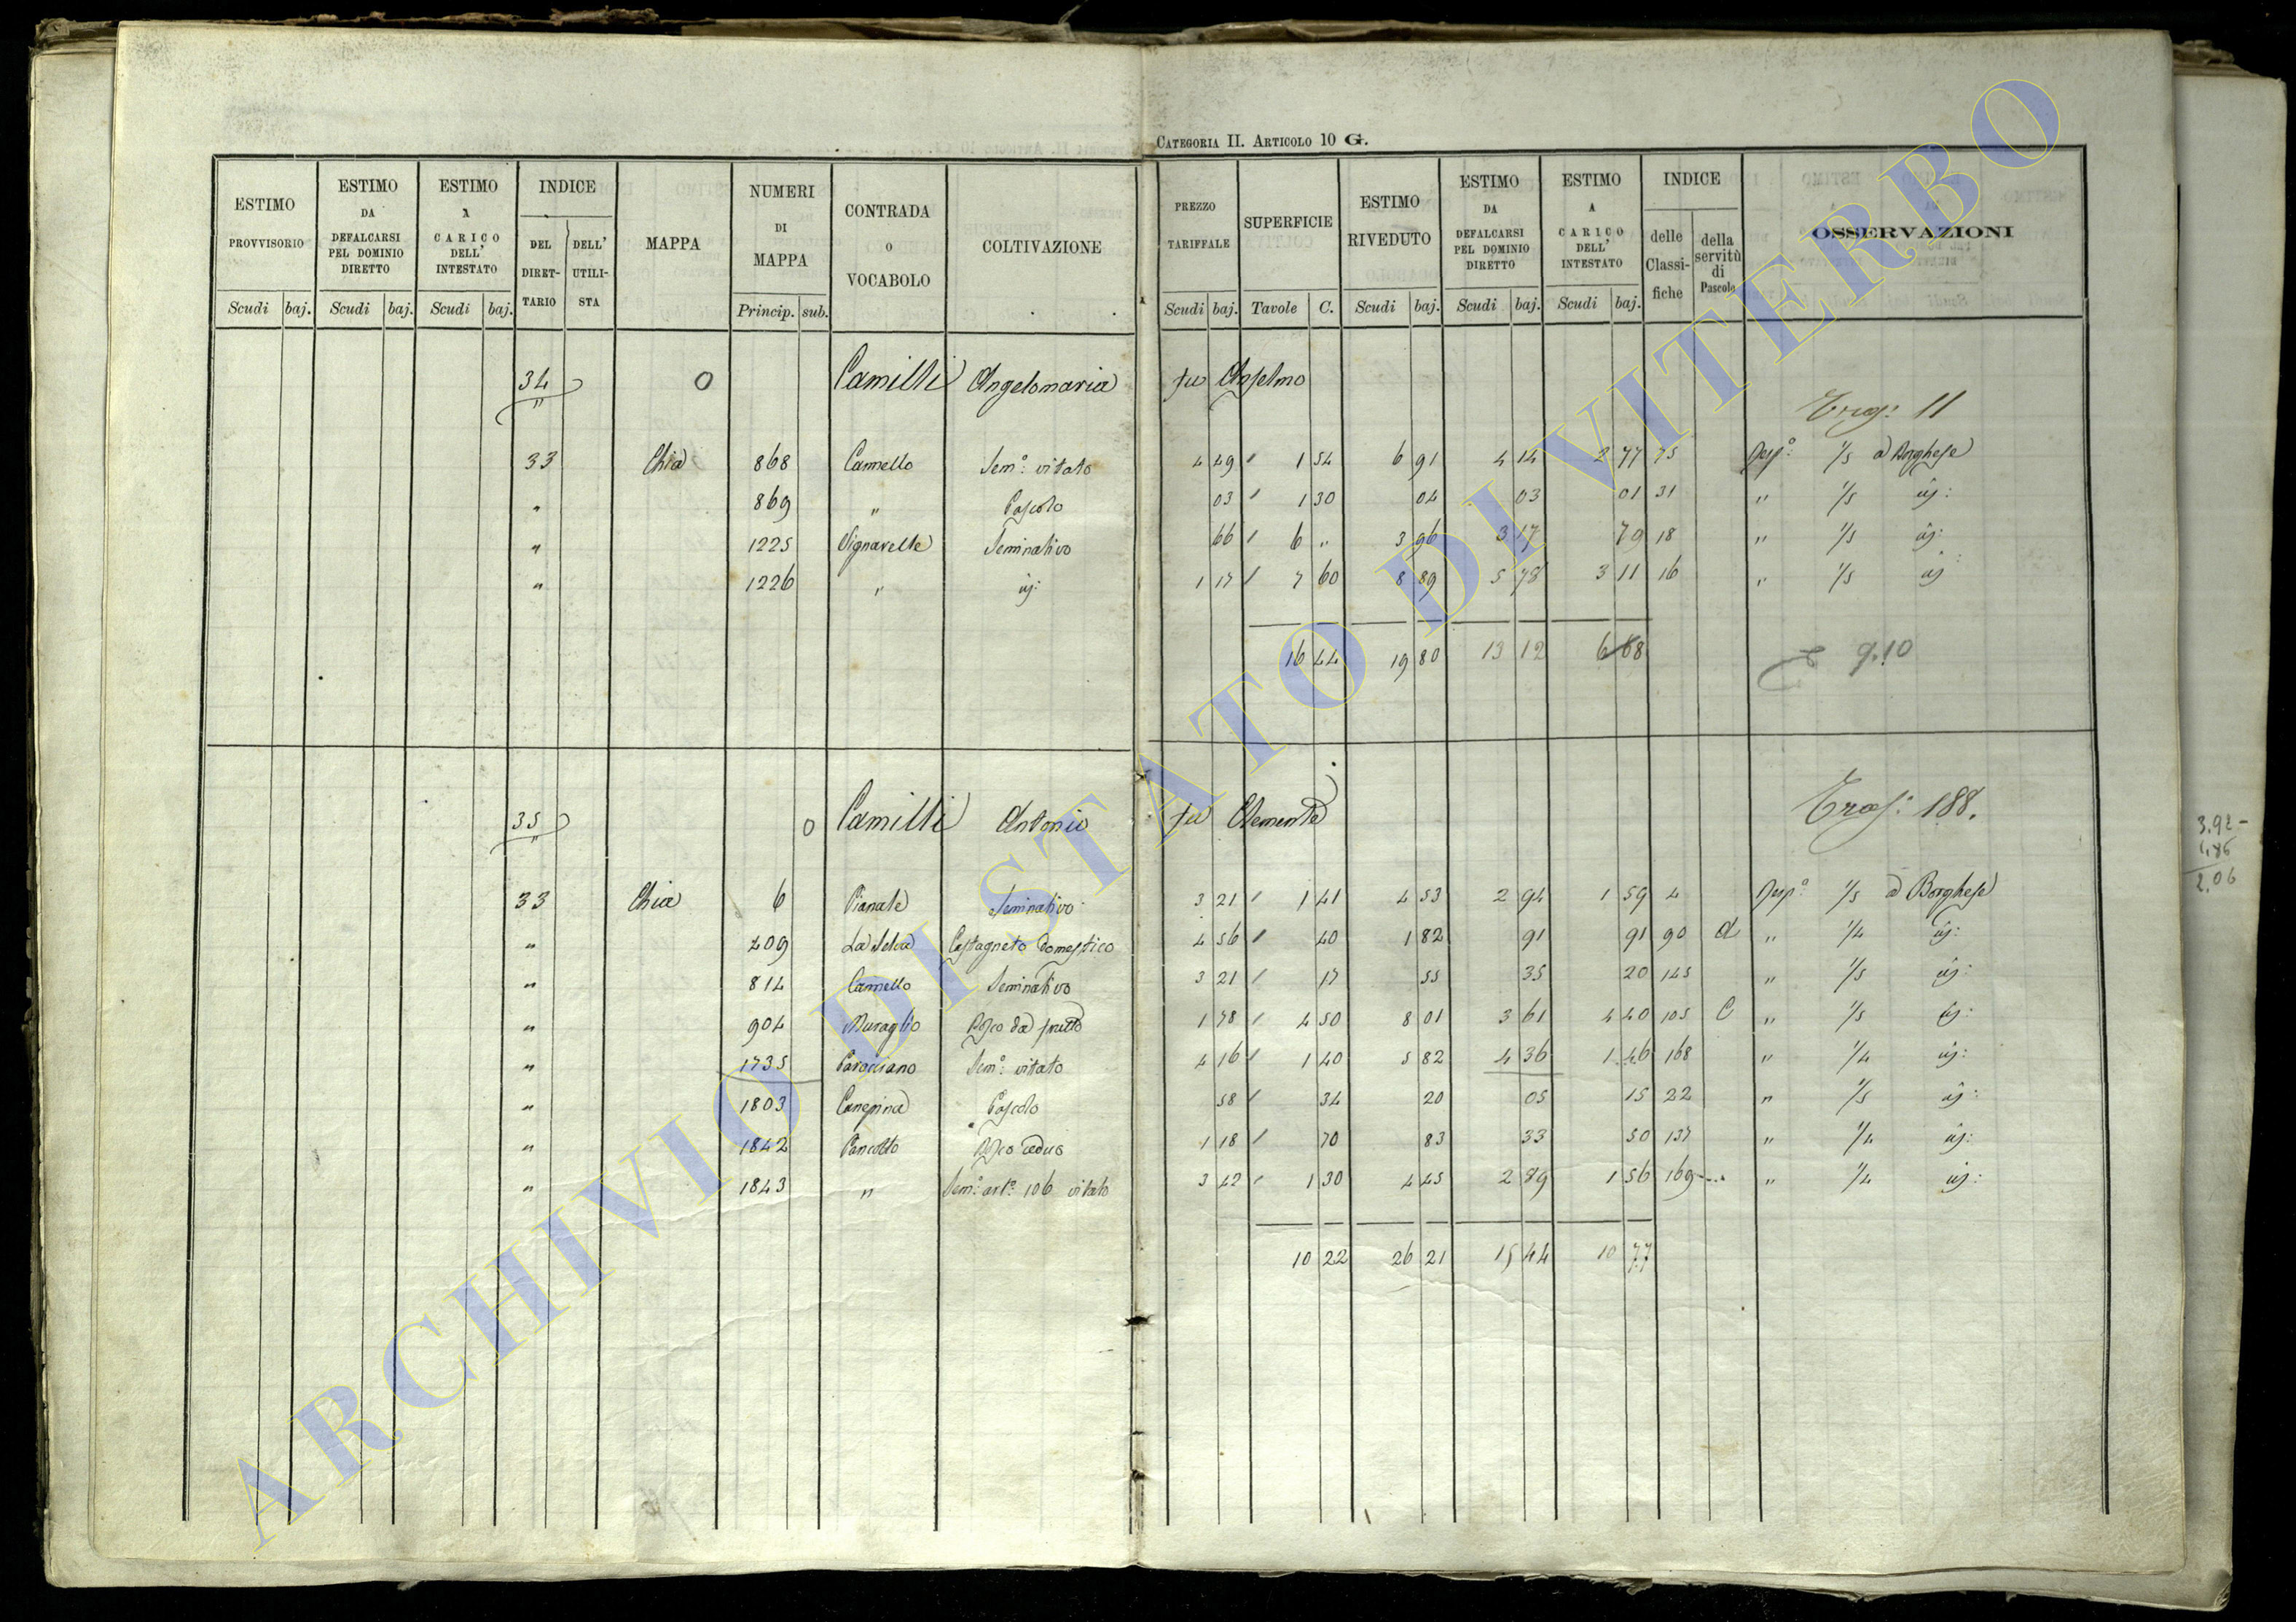 CATEGORIA II. ARTICOLO 10 G.
ESTIMO PROVVISORIO | ESTIMO DA DEFALCARSI PEL DOMINIO DIRETTO | ESTIMO A CARICO DELL' INTESTATO | INDICE DEL DIRETTARIO | DELL' UTILISTA | MAPPA | NUMERI DI MAPPA | CONTRADA O VOCABOLO | COLTIVAZIONE | PREZZO TARIFFALE | SUPERFICIE | ESTIMO RIVEDUTO | ESTIMO DA DEFALCARSI PEL DOMINIO DIRETTO | ESTIMO A CARICO DELL' INTESTATO | INDICE delle Classifiche | della servitù di Pascolo | OSSERVAZIONI
Scudi baj. | Scudi baj. | Scudi baj. | Princip. sub. | Scudi baj. | Tavole C. | Scudi baj. | Scudi baj. | Scudi baj.
34 O Camilli Angelomaria fu Anselmo
11
33 Chia 868 Cannello Sem.º vitato 4 49 1 54 6 91 4 14 2 77 75 Resp.º 1/5 a Borghese
" 869 " Pascolo 03 1 30 04 03 01 31 " 1/5 id:
" 1225 Vignarelle Seminativo 66 6 " 3 96 3 17 79 18 " 1/5 id:
" 1226 " id: 1 17 7 60 8 89 5 78 3 11 16 " 1/5 id
16 44 19 80 13 12 6 68 9.10
35 O Camilli Antonio fu Clemente
188.
33 Chia 6 Pianale Seminativo 3 21 1 41 4 53 2 94 1 59 4 Resp.º 1/5 a Borghese
" 409 La Selva Castagneto domestico 4 56 40 1 82 91 91 90 d " 1/4 id:
" 814 Cannello Seminativo 3 21 17 55 35 20 145 " 1/5 id:
" 904 Muraglio Bosco da frutto 1 78 4 50 8 01 3 61 4 40 105 C " 1/5 id:
" 1735 Paracciano Sem.º vitato 4 16 1 40 5 82 4 36 1 46 168 " 1/4 id:
" 1803 Canepina Pascolo 58 34 20 05 15 22 " 1/5 id:
" 1842 Pancotto Bosco ceduo 1 18 70 83 33 50 137 " 1/4 id:
" 1843 " Sem.º art.º 106 vitato 3 42 1 30 4 45 2 89 1 56 169 " 1/4 id:
10 22 26 21 15 44 10 77
3.92 -
1.86
2.06
ARCHIVIO DI STATO DI VITERBO